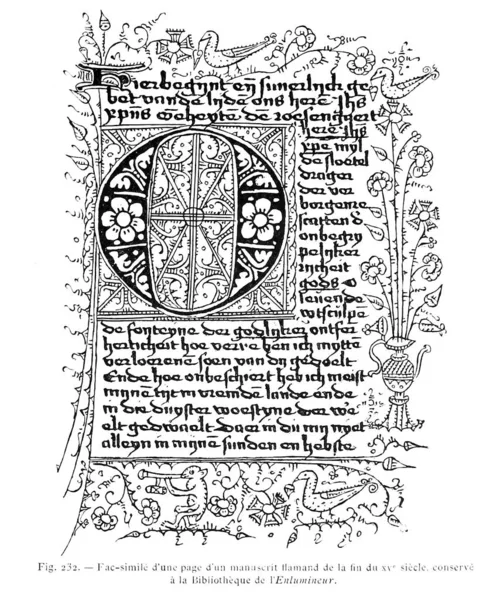 Hier begynt een sunerlyck ge
bet van de lyden ons heren Jhs
xpus geheyten de roesengaert
O here Jhs
xpe myl
de sloetel
drager
der ver
borgenre
scatten d
onbegry
pelyker
rycheit
gods
leuende
de fonteyne der godlyker ontfer
herticheit hoe verre ben ich mytten
verloerenen soen van dy gedoelt
Ende hoe onbeschiert heb ich meist
mynen tyt in vremden lande ende
in dre duyster woestyne der we
elt gedwaelt daer in dii my nyet
alleyn in mynen sunden en hebste
Fig. 232. — Fac-similé d'une page d'un manuscrit flamand de la fin du XVe siècle, conservé
à la Bibliothèque de l'Enlumineur.